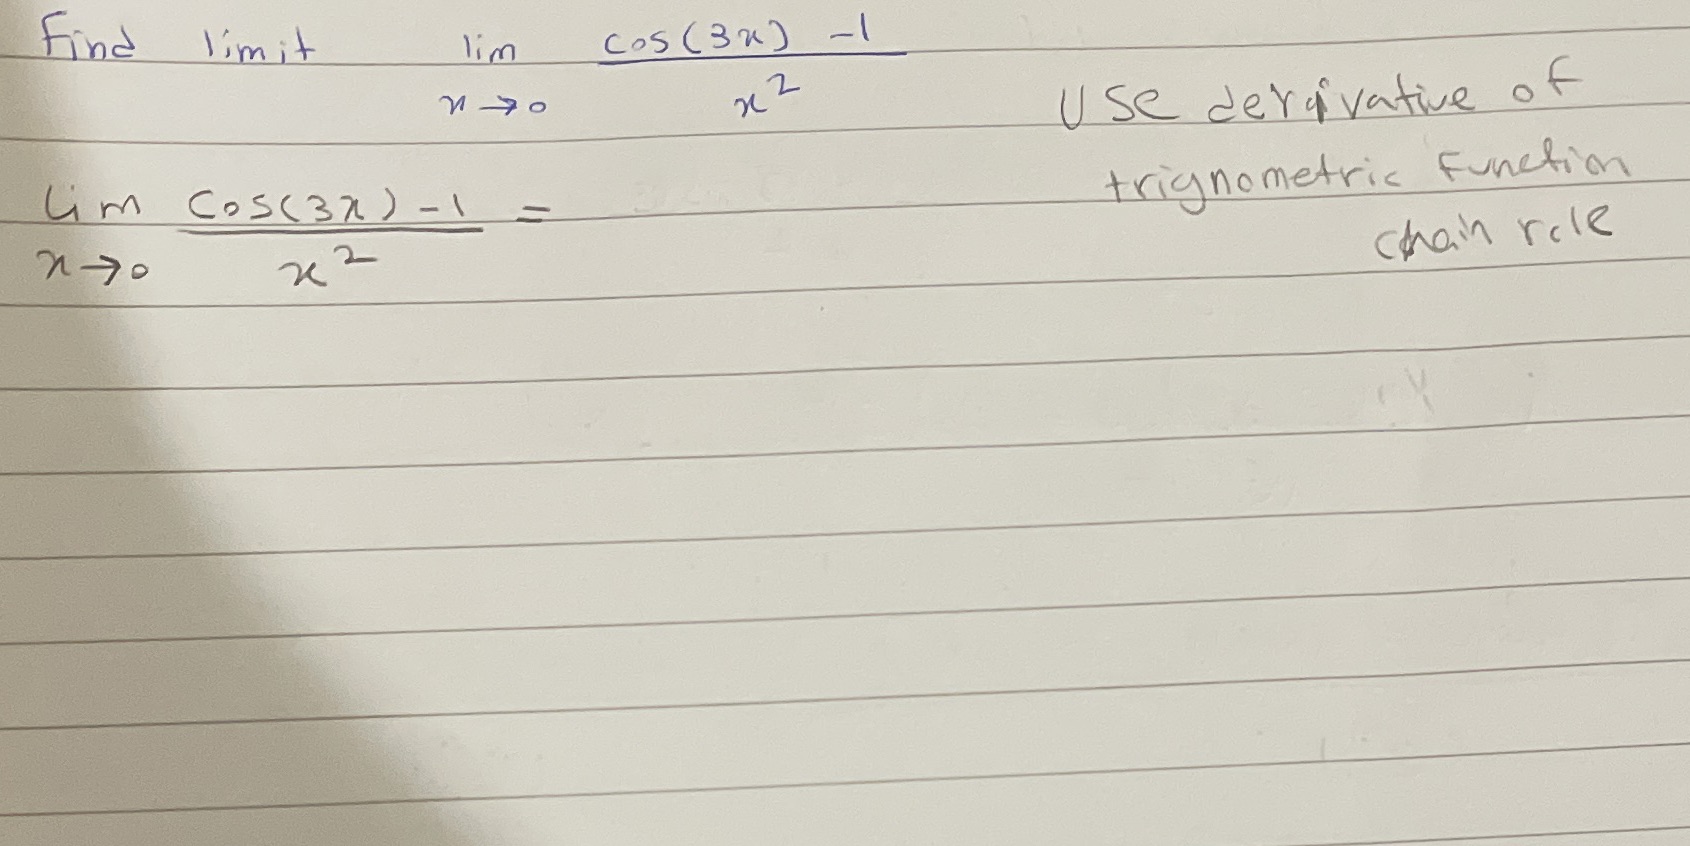 Find limit lim cos(3x) -1
x→0 x²
USE derivative of
trignometric Function
chain role
lim cos(3x) -1 =
x→0 x²